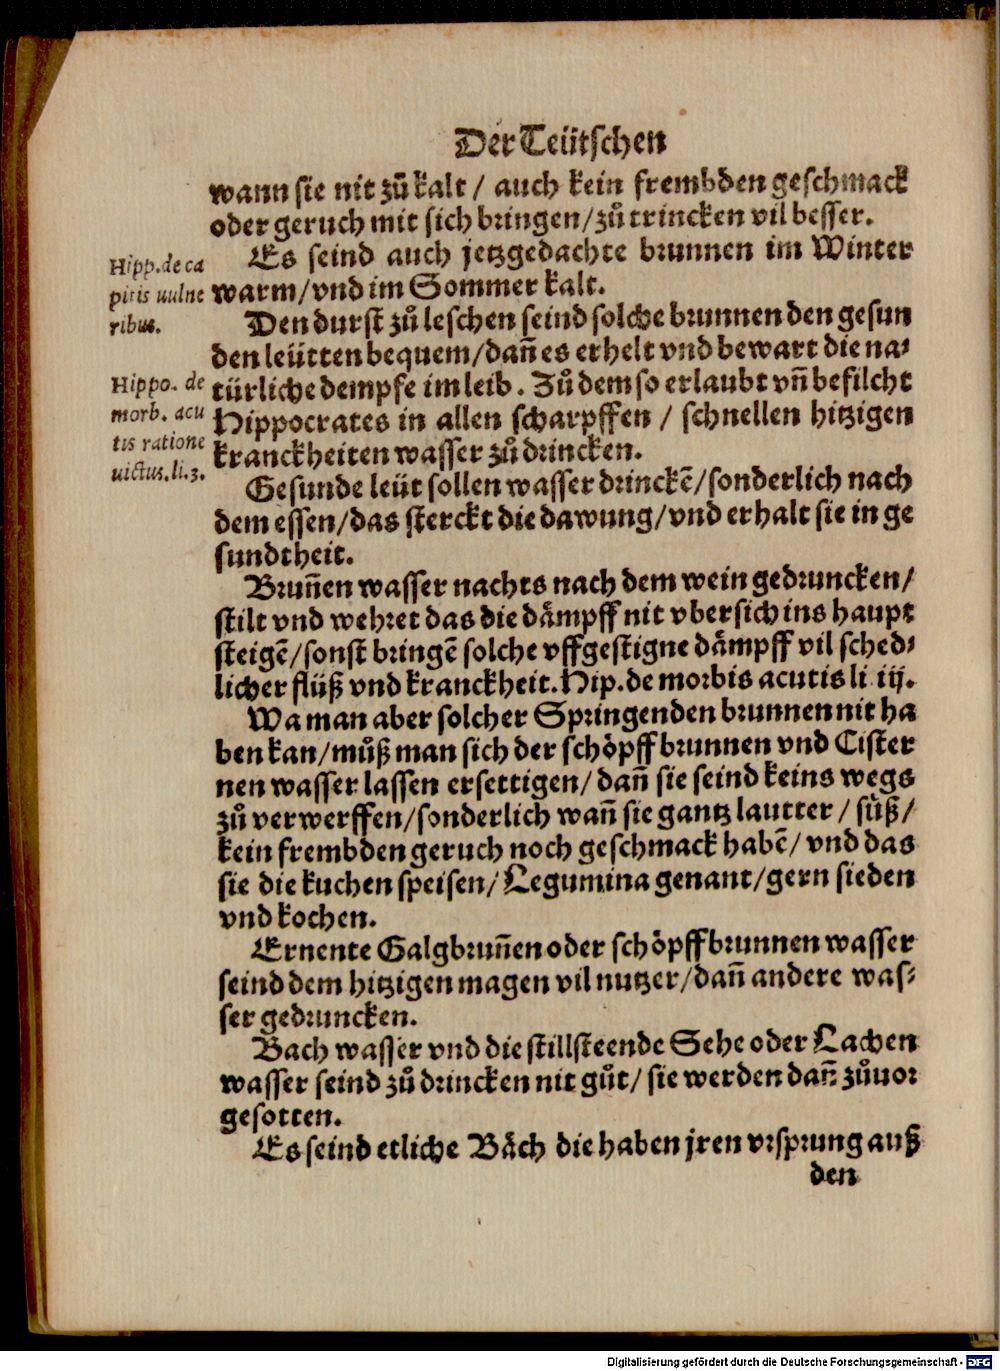 Der Teütschen
wann sie nit zů kalt / auch kein frembden geschmack
oder geruch mit sich bringen/zů trincken vil besser.
Es seind auch jetzgedachte brunnen im Winter
warm/vnd im Sommer kalt.
Hipp.de ca
pitis uulne
ribus.
Den durst zů leschen seind solche brunnen den gesun
den leütten bequem/dañ es erhelt vnd bewart die na-
türliche dempfe im leib. Zů dem so erlaubt vñ befilcht
Hippocrates in allen scharpffen / schnellen hitzigen
kranckheiten wasser zů drincken.
Hippo. de
morb. acu
tis ratione
uictus.li.3.
Gesunde leüt sollen wasser drinckẽ/sonderlich nach
dem essen/das sterckt die dawung/vnd erhalt sie in ge
sundtheit.
Bruñen wasser nachts nach dem wein gedruncken/
stilt vnd wehret das die dåmpff nit vbersich ins haupt
steigẽ/sonst bringẽ solche vffgestigne dåmpff vil sched-
licher flüß vnd kranckheit. Hip.de morbis acutis li iij.
Wa man aber solcher Springenden brunnen nit ha
ben kan/můß man sich der schöpff brunnen vnd Cister
nen wasser lassen ersettigen/ dañ sie seind keins wegs
zů verwerffen/sonderlich wañ sie gantz lautter / süß/
kein frembden geruch noch geschmack habẽ/ vnd das
sie die kuchen speisen/ Legumina genant/gern sieden
vnd kochen.
Ernente Galgbruñen oder schöpffbrunnen wasser
seind dem hitzigen magen vil nutzer/dañ andere was-
ser gedruncken.
Bach wasser vnd die stillsteende Sehe oder Lachen
wasser seind zů drincken nit gůt/ sie werden dañ zůuor
gesotten.
Es seind etliche Båch die haben jren vrsprung auß
den
Digitalisierung gefördert durch die Deutsche Forschungsgemeinschaft - DFG